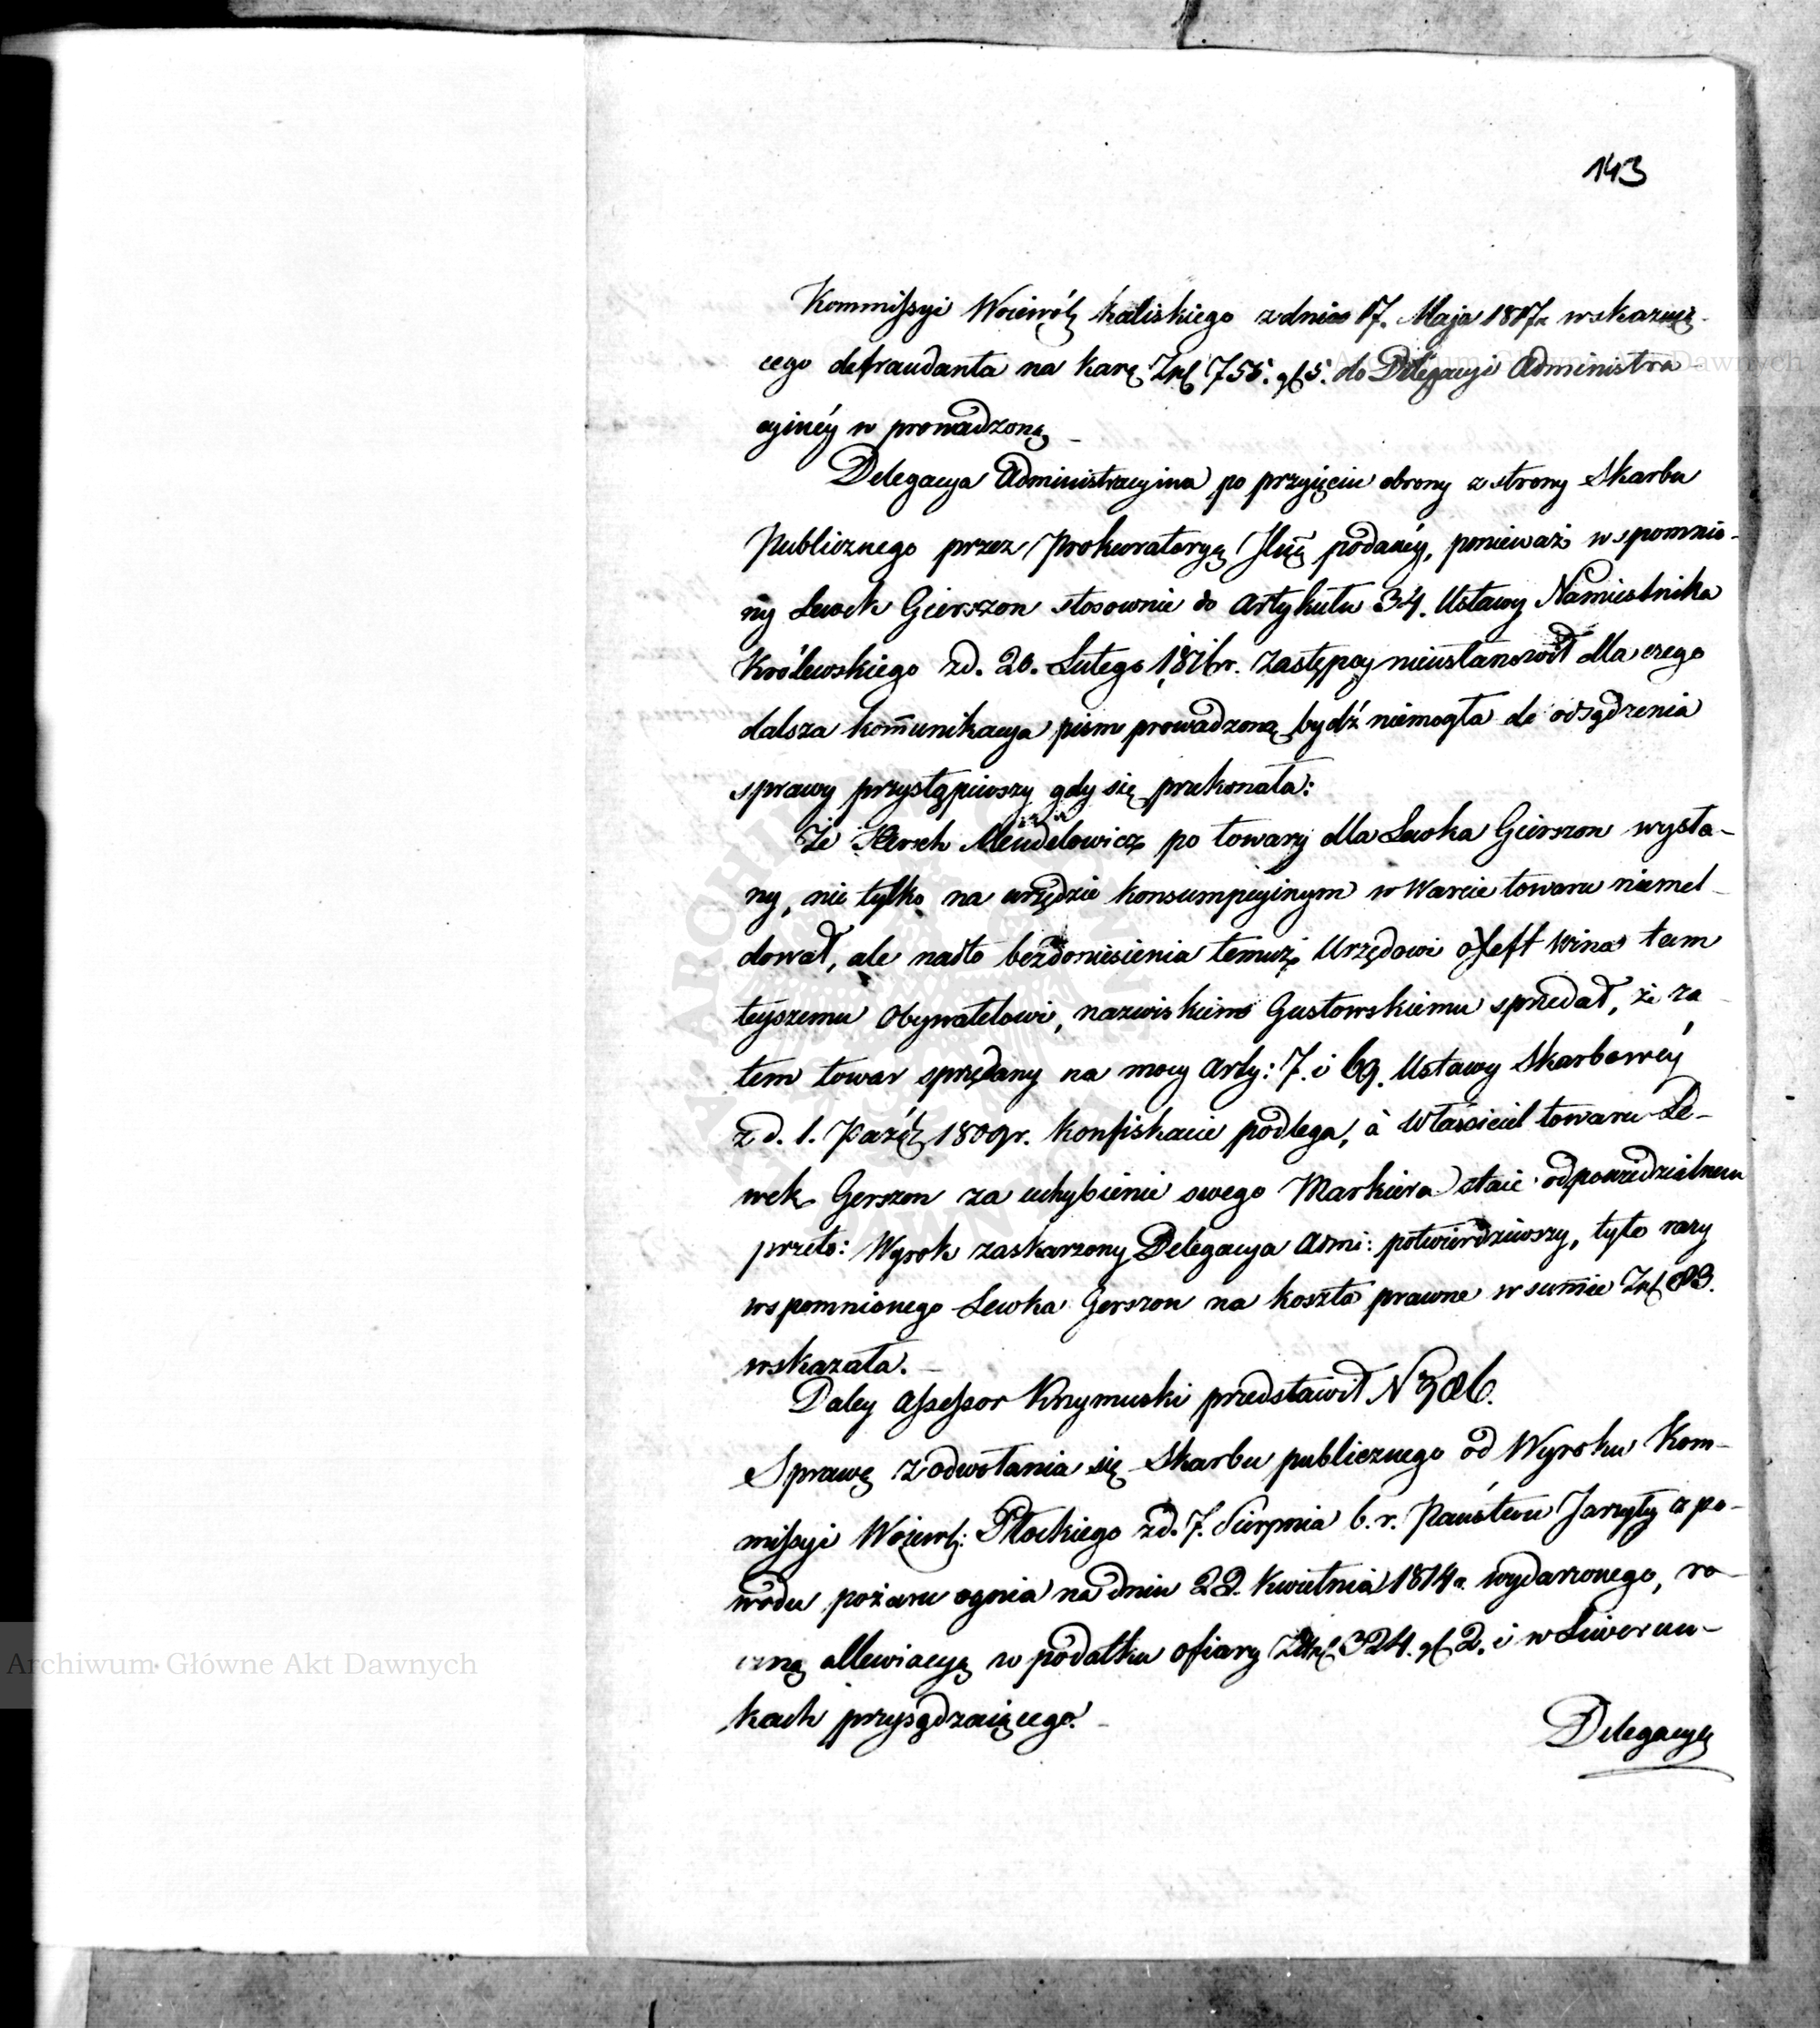 143
Kommissyi Woiewódz Kaliskiego z dnia 17. Maja 1817r wskazuią-
cego defraudanta na karę Złp 755. gr 5. do Delegacyi Administra-
cyinéy wprowadzoną
Delegacya Administracyina po przyięciu obrony z strony Skarbu
Publicznego przez Prokuratoryą Jlną podanéy, ponieważ wspomnio-
ny Lewek Gierszon stosownie do Artykułu 34. Ustawy Namiestnika
Królewskiego z d. 20. Lutego 1816r. zastępcy nieustanowił dla czego
dalsza kom̄unikacya pism prowadzoną bydź niemogła do osądzenia
sprawy przystąpiwszy gdy się przekonała:
Że Hersch Mendelowicz po towary dla Lewka Gierszon wysła-
ny, nie tylko na urzędzie konsumpcyinym w Warcie towaru niemel-
dował, ale nadto bez doniesienia temuż Urzędowi oxeft wina tam
teyszemu Obywatelowi, nazwiskiem Gustowskiemu sprzedał, że za
tem towar sprzedany na mocy Arty: 7. i 69. Ustawy Skarbowéy
z d. 1. Paźdz 1809r. konfiskacie podlega, à Właściciel towaru Le-
wek Gerszon za uchybienie swego Markiera staie odpowiedzialnem
przeto: Wyrok zaskarzony Delegacya Admi: potwierdziwszy, tyle razy
wspomnionego Lewka Gerszon na koszta prawne w sum̄ie Złp 83.
wskazała.-
Daley Assessor Krzymuski przedstawił N 386.
Sprawę z odwołania się Skarbu publicznego od Wyroku Kom-
missyi Woiewdz: Płockiego z d. 7. Sierpnia b. r. Państwu Jarzyły z po-
wodu pożaru ognia na dniu 22. Kwietnia 1814r. wydarzonego, ro-
czną allewiacyą w podatku ofiary Złp 324. gr 2. i w Liwerun-
kach przysądzaiącego.-
Delegacya
Archiwum Główne Akt Dawnych
Archiwum Główne Akt Dawnych